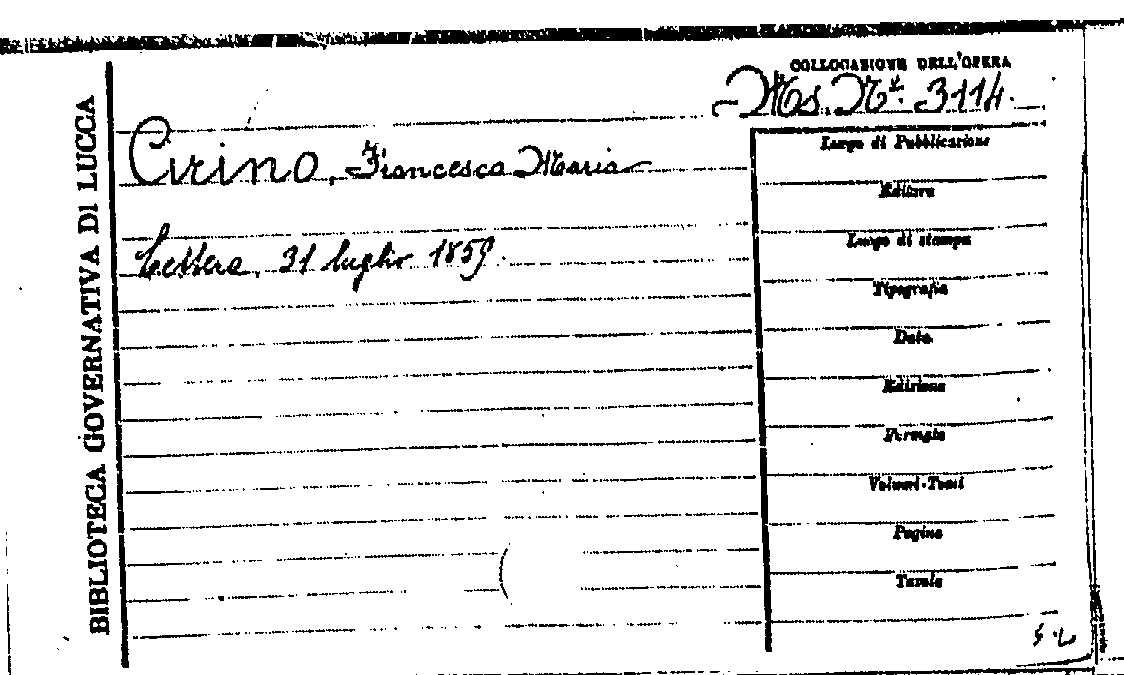 BIBLIOTECA GOVERNATIVA DI LUCCA
COLLOCAZIONE DELL'OPERA
Ms. Nº. 3114.
Cirino, Francesca Maria
Lettera, 31 luglio 1859.
Luogo di Pubblicazione
Editore
Luogo di stampa
Tipografia
Data
Edizione
Formato
Volumi-Tomi
Pagine
Tavole